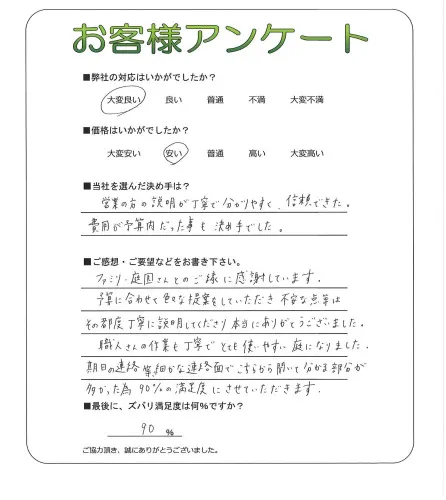 お客様アンケート
■弊社の対応はいかがでしたか？
大変良い 良い 普通 不満 大変不満
■価格はいかがでしたか？
大変安い 安い 普通 高い 大変高い
■当社を選んだ決め手は？
営業の方の説明が丁寧で分かりやすく、信頼できた。
費用が予算内だった事も決め手でした。
■ご感想・ご要望などをお書き下さい。
ファミリー庭園さんとのご縁に感謝しています。
予算に合わせて色々な提案をしていただき 不安な点等は
その都度丁寧に説明してくださり本当にありがとうございました。
職人さんの作業も丁寧でとても使いやすい庭になりました。
期日の連絡等、細かな連絡面でこちらから聞いて分かる部分が
多かった為 90%の満足度にさせていただきます。
■最後に、ズバリ満足度は何%ですか？
90 %
ご協力頂き、誠にありがとうございました。